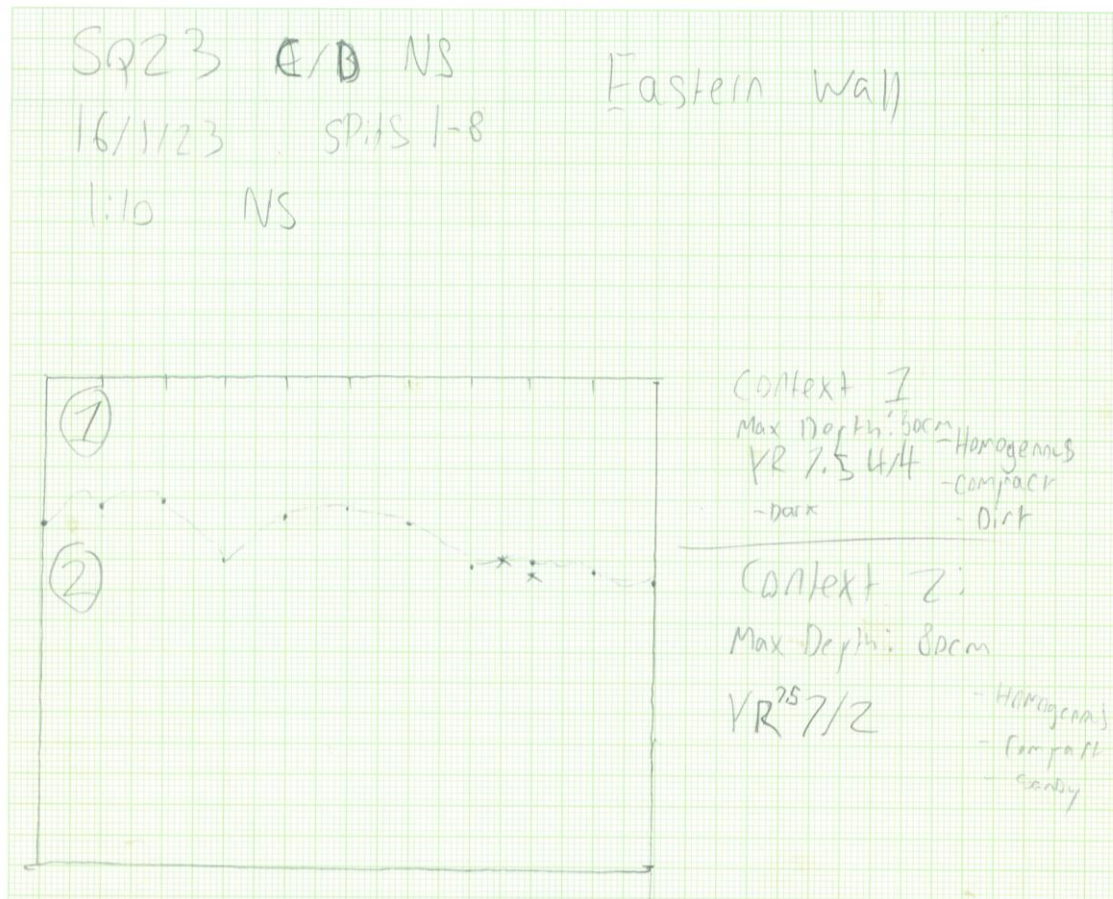 SQ23 C/D NS
Eastern Wall
16/1/23 SPitS 1-8
1:10 NS
1
2
Context 1
Max Depth: 30cm
YR 7.5 4/4
- Dark
- Homogenus
- Compact
- Dirt
Context 2:
Max Depth: 80cm
YR 7.5 7/2
- Homogenus
- Compact
- Sandy